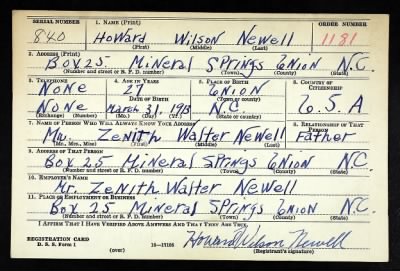 SERIAL NUMBER 1. NAME (Print) ORDER NUMBER
840 Howard Wilson Newell 1181
(First) (Middle) (Last)
2. ADDRESS (Print)
Box 25 Mineral Springs Union N.C.
(Number and street or R. F. D. number) (Town) (County) (State)
3. TELEPHONE 4. AGE IN YEARS 5. PLACE OF BIRTH 6. COUNTRY OF CITIZENSHIP
None 27 Union
DATE OF BIRTH (Town or county)
None March 31, 1913 N.C. U.S.A
(Exchange) (Number) (Mo.) (Day) (Yr.) (State or country)
7. NAME OF PERSON WHO WILL ALWAYS KNOW YOUR ADDRESS 8. RELATIONSHIP OF THAT PERSON
Mr. Zenith Walter Newell Father
(Mr., Mrs., Miss) (First) (Middle) (Last)
9. ADDRESS OF THAT PERSON
Box 25 Mineral Springs Union N.C.
(Number and street or R. F. D. number) (Town) (County) (State)
10. EMPLOYER'S NAME
Mr. Zenith Walter Newell
11. PLACE OF EMPLOYMENT OR BUSINESS
Box 25 Mineral Springs Union N.C.
(Number and street or R. F. D. number) (Town) (County) (State)
I AFFIRM THAT I HAVE VERIFIED ABOVE ANSWERS AND THAT THEY ARE TRUE.
REGISTRATION CARD
D. S. S. Form 1 (over) 16—17105 Howard Wilson Newell
(Registrant's signature)